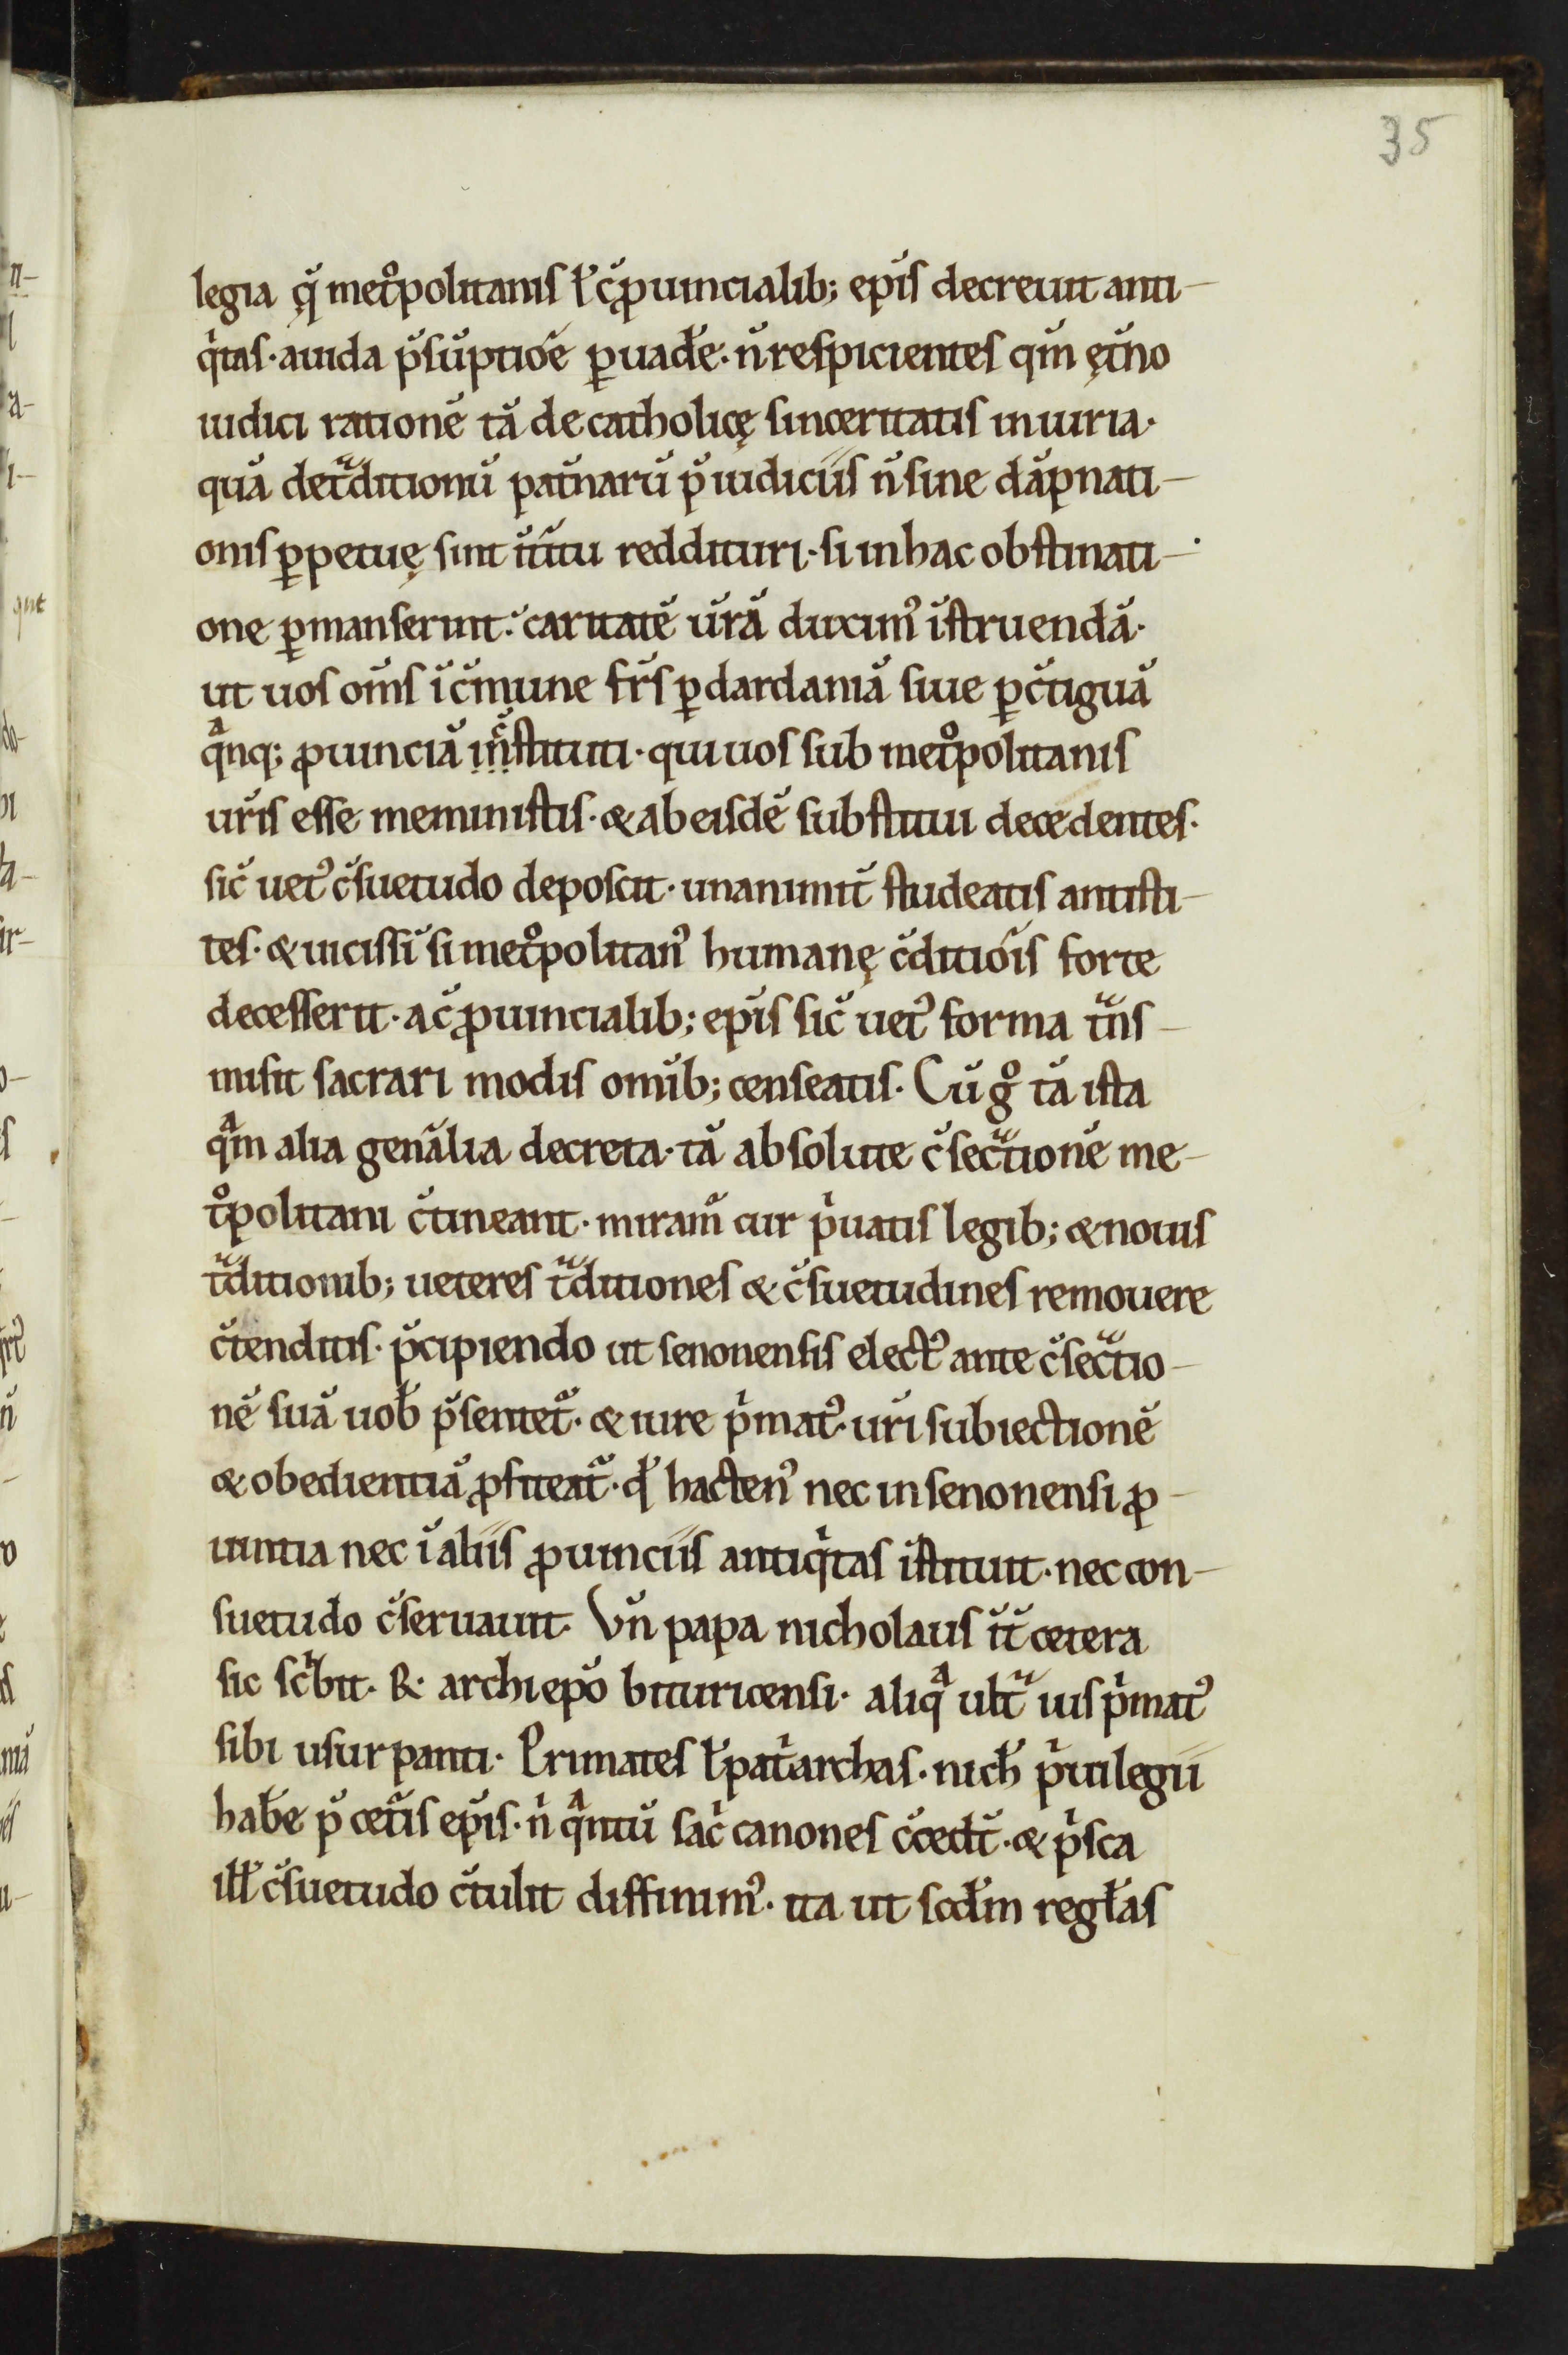 35
legia q̨̆ met͛politanis ł c̆ꝓuincialib; ep̆is decreuit anti-
q̇tas· auida p̆sŭptiŏe ꝑuad̆e· n̆ respicientes qm̆ ęt̆no
iudici rationĕ tă de catholicę sinceritatis iniuria·
quă de tᷓditionŭ pat̆narŭ p̆iudiciis n̆ sine dăpnati-
onis ꝑpetuę sint ĭt̆itu reddituri· si in hac obstinati-
one ꝑmanserint· caritatĕ ŭră duximꝰ ĭstruendă·
ut uos om̆s ĭ c̆mune fr̆s ꝑ dardaniă siue ꝑ c̆tiguă
qᷓnq; ꝓuinciă in̆stituti· qui uos sub metͦpolitanis
ur̆is esse meministis· & ab eisdĕ substitui decedentes·
sic̆ uetꝰ c̆suetudo deposcit· unanimit̆ studeatis antisti-
tes· & uicissĭ si metͦpolitanꝰ humanę c̆ditiŏis forte
decesserit· a c̆ꝓuincialib; ep̆is sic̆ uetꝰ forma tᷓns-
misit sacrari modis omĭb; censeatis· Cŭ gͦ tă ista
qᷓm alia gen̆alia decreta· tă absolute c̆secᷓtionĕ me-
tͦpolitani c̆tineant· miram̆ cur pͥuatis legib; & nouis
tᷓditionib; ueteres tᷓditiones & c̆suetudines remouere
c̆tenditis· p̆cipiendo ut senonensis electꝰ ante c̆secᷓtio-
nĕ suă uob̆ p̆sentet̆· & iure pͥmatꝰ ur̆i subiectionĕ
& obedientiă ꝓfiteat̆· qd̆ hactenꝰ nec in senonensi ꝓ-
uintia nec ĭ aliis ꝓuinciis antiqͥtas ĭstituit· nec con-
suetudo c̆seruauit· Vn̆ papa nicholaus ĭt̆ cetera
sic scͥbit· R· archiepŏ bituricensi· aliqᷓ ultᷓ ius pͥmatꝰ
sibi usurpanti· Primates ł patͥarchas· nich̆ pͥuilegii
hab̆e p̆ cet̆is ep̆is· nͥ qᷓntŭ sacͥ canones c̆cedt̆· & pͥsca
ill̆ c̆suetudo c̆tulit diffinimꝰ· ita ut scd̆m regl̆as